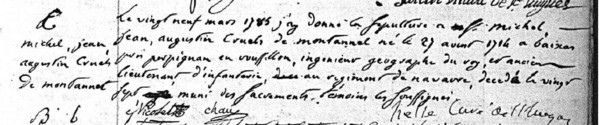 Le vingt neuf mars 1785 j'ay donné la sepulture a mr. michel
jean, augustin Cruels de montannel né le 27 aoust 1714 a baixas
près perpignan en roussillon, ingenieur geographe du roy, et ancien
lieutenant d'infanterie, au regiment de navarre, decedé le vingt
sept muni des sacrements. temoins les soussignés
michel, jean,
augustin Cruels
de montannel
B. b